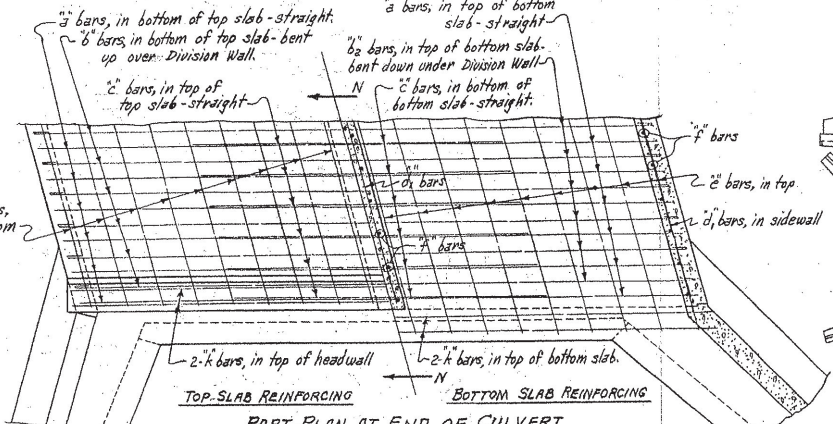 "a" bars, in bottom of top slab-straight.
"b" bars, in bottom of top slab-bent
up over Division Wall.
"c" bars, in top of
top slab-straight
a bars, in top of bottom
slab-straight
"b2" bars, in top of bottom slab-
bent down under Division Wall
"c" bars, in bottom of
bottom slab-straight.
N
"f" bars
"e" bars, in top
"d1" bars, in sidewall
bars
"f" bars
2-"k" bars, in top of headwall
2-"k" bars, in top of bottom slab.
N
TOP SLAB REINFORCING
BOTTOM SLAB REINFORCING
PART PLAN AT END OF CULVERT